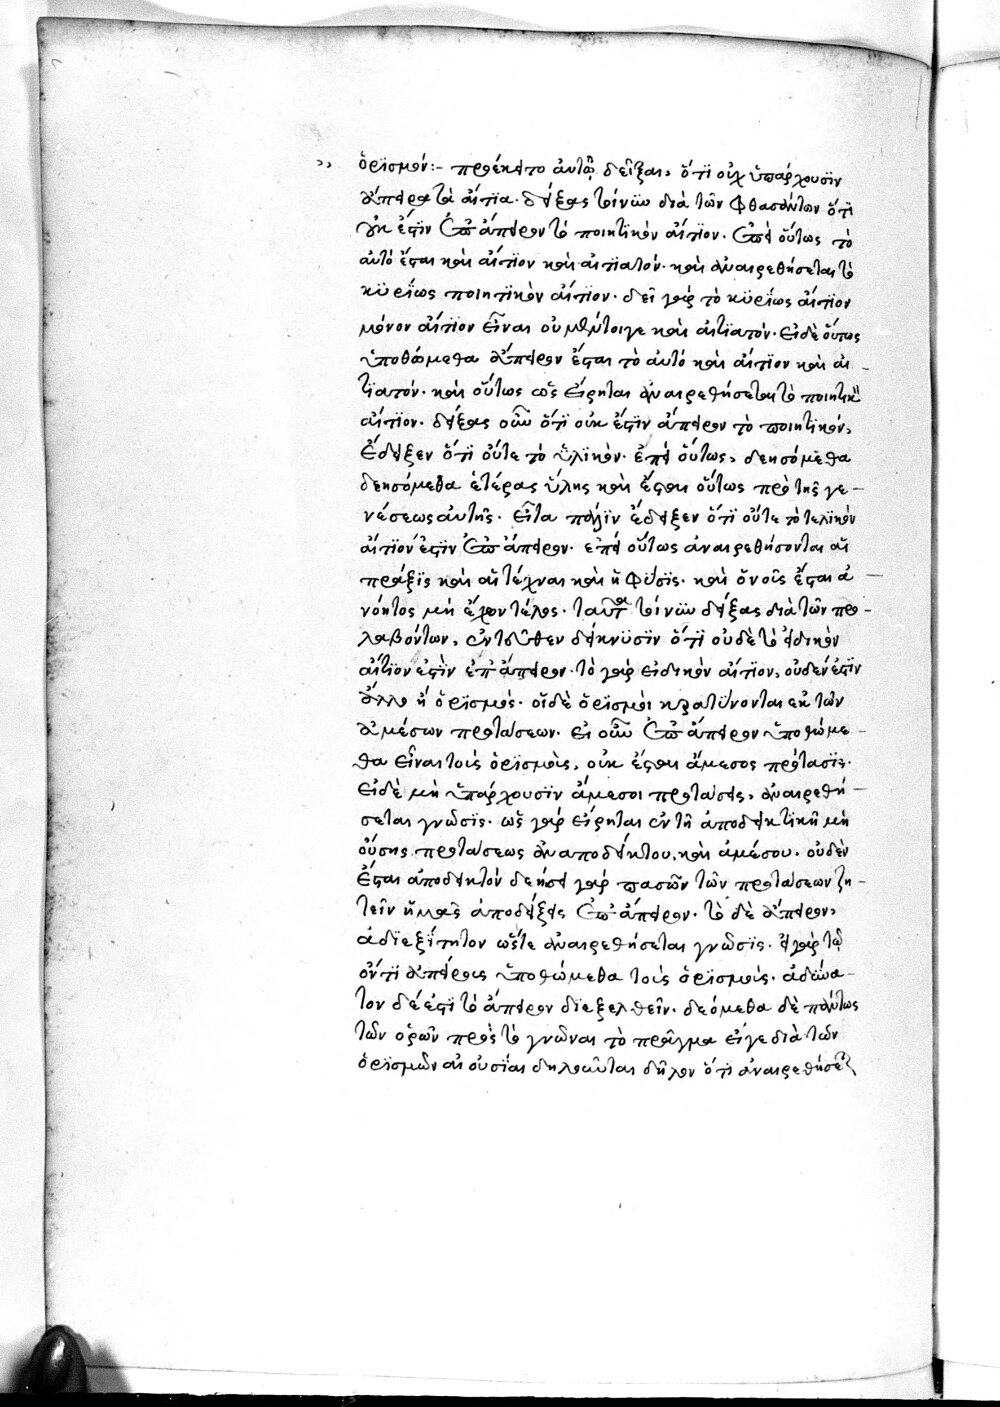 ὁρισμόν:- προέκειτο αὐτῷ δεῖξαι, ὅτι οὐχ ὑπάρχουσιν
ἄπειρα τὰ αἴτια. δείξας τοίνυν διὰ τῶν φθασάντων ὅτι
οὐκ ἔστιν ἐπ' ἄπειρον τὸ ποιητικὸν αἴτιον. ἐπεὶ οὕτως τὸ
αὐτὸ ἔσται καὶ αἴτιον καὶ αἰτιατόν. καὶ ἀναιρεθήσεται τὸ
κυρίως ποιητικὸν αἴτιον. δεῖ γὰρ τὸ κυρίως αἴτιον
μόνον αἴτιον εἶναι οὐ μέντοιγε καὶ αἰτιατόν. εἰ δὲ οὕτως
ὑποθώμεθα ἄπειρον ἔσται τὸ αὐτὸ καὶ αἴτιον καὶ αἰ-
τιατόν. καὶ οὕτως ὡς εἴρηται ἀναιρεθήσεται τὸ ποιητικὸν
αἴτιον. δείξας οὖν ὅτι οὐκ ἔστιν ἄπειρον τὸ ποιητικόν,
ἔδειξεν ὅτι οὔτε τὸ ὑλικόν. ἐπεὶ οὕτως, δεησόμεθα
δεησόμεθα ἑτέρας ὕλης καὶ ἔσται οὕτως πρὸ τῆς γε-
νέσεως αὐτῆς. εἶτα πάλιν ἔδειξεν ὅτι οὔτε τὸ τελικὸν
αἴτιον ἐστὶν ἐπ' ἄπειρον. ἐπεὶ οὕτως ἀναιρεθήσονται αἱ
πράξις καὶ αἱ τέχναι καὶ ἡ φύσις. καὶ ὁ νοῦς ἔσται ἀ-
νόητος μὴ ἔχων τέλος. ταῦτα τοίνυν δείξας διὰ τῶν προ-
λαβόντων, ἐντεῦθεν δείκνυσιν ὅτι οὐδὲ τὸ εἰδικὸν
αἴτιον ἐστὶν ἐπ' ἄπειρον. τὸ γὰρ εἰδικὸν αἴτιον, οὐδέν ἐστιν
ἄλλο ἢ ὁρισμός. οἱ δὲ ὁρισμοὶ κρατύνονται ἐκ τῶν
ἀμέσων προτάσεων. εἰ οὖν ἐπ' ἄπειρον ὑποθώμε-
θα εἶναι τοὺς ὁρισμοὺς, οὐκ ἔσται ἄμεσος πρότασις.
εἰ δὲ μὴ ὑπάρχουσιν ἄμεσοι προτάσεις, ἀναιρεθή-
σεται γνῶσις. ὡς γὰρ εἴρηται ἐν τῇ ἀποδεικτικῇ μὴ
οὔσης προτάσεως ἀναποδείκτου, καὶ ἀμέσου. οὐδὲν
ἔσται ἀποδεικτόν δεήσει γὰρ πασῶν τῶν προτάσεων ζη-
τεῖν ἡμᾶς ἀποδείξεις ἐπ' ἄπειρον. τὸ δὲ ἄπειρον,
ἀδιεξίτητον ὥστε ἀναιρεθήσεται γνῶσις. εἰ γὰρ τῷ
ὄντι ἀπείρους ὑποθώμεθα τοὺς ὁρισμούς. ἀδύνα-
τον δέ ἐστι τὸ ἄπειρον διεξελθεῖν. δεόμεθα δὲ πάντως
τῶν ὅρων πρὸς τὸ γνῶναι τὸ πρᾶγμα εἴγε διὰ τῶν
ὁρισμῶν αἱ οὐσίαι δηλοῦνται δῆλον ὅτι ἀναιρεθήσεται